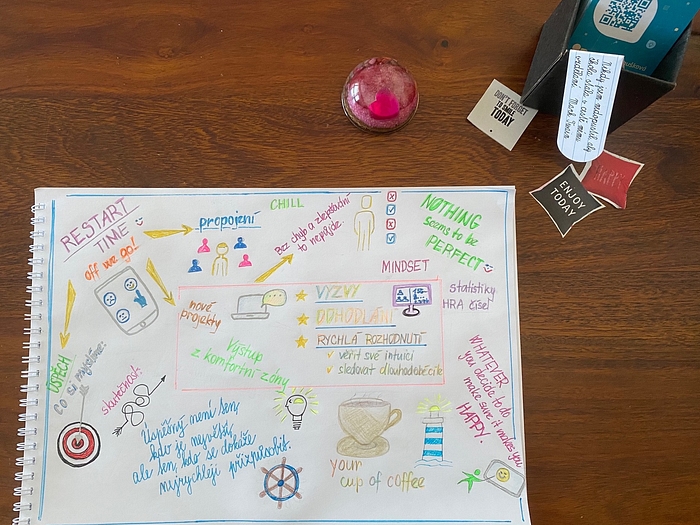 RESTART
TIME
off we go!
propojení
CHILL
Bez chyb a zlepšování
to nepůjde
NOTHING
seems to be
PERFECT
MINDSET
statistiky
HRA čísel
nové
projekty
VÝZVY
ODHODLÁNÍ
RYCHLÁ ROZHODNUTÍ
věřit své intuici
sledovat dlouhodobé cíle
Výstup
z komfortní zóny
ÚSPĚCH
CO si myslíme:
skutečnost:
Úspěšný není ten,
kdo je největší,
ale ten, kdo se dokáže
nejrychleji přizpůsobit.
your
cup of coffee
WHATEVER
you decide to do
make sure it makes you
HAPPY.
DON'T FORGET
TO SMILE
TODAY
ENJOY
TODAY
Nikdy jsem nedopustil, aby
škola stála v cestě mému
vzdělání.
Mark Twain